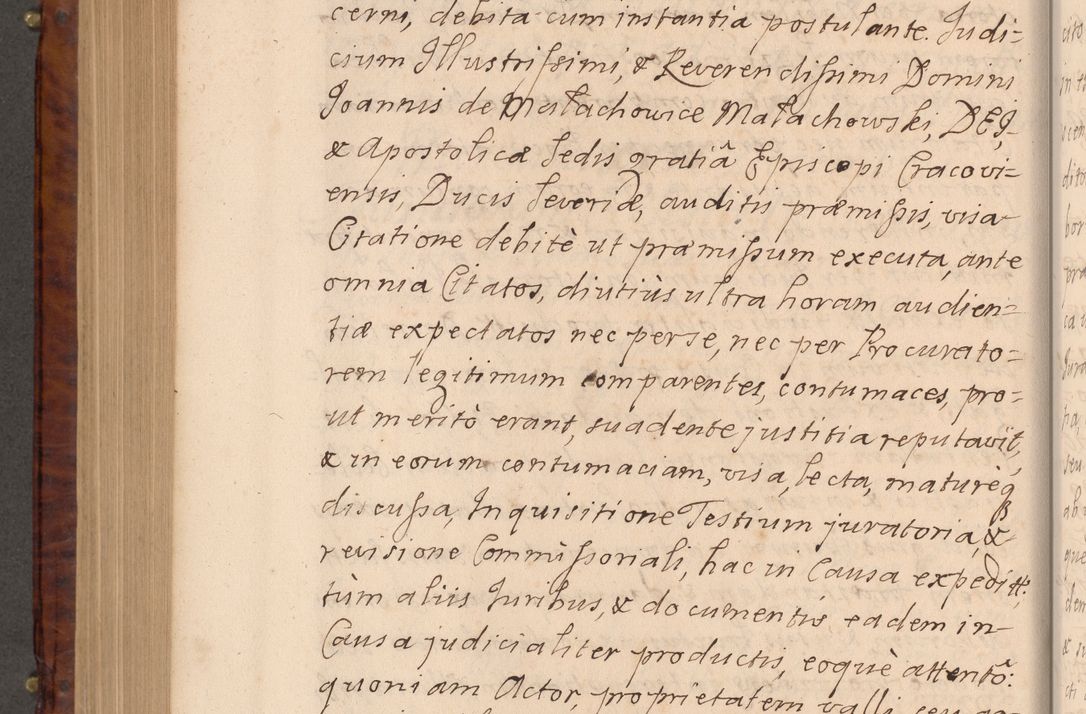 cerni, debita cum instantia postulante. Judi=
cium Illustrissimi, & Reverendissimi Domini
Joannis de Małachowice Małachowski, DEJ,
& Apostolicæ Sedis gratiâ Episcopi Cracovi=
ensis, Ducis Severiæ, auditis præmissis, visa
Citatione debitè ut præmissum executa, ante
omnia Citatos, diutiùs ultra horam audien=
tiæ expectatos nec per se, nec per Procurato=
rem legitimum comparentes, contumaces, pro=
ut meritò erant, suadente justitia reputavit,
& in eorum contumaciam, visa, lecta, maturèq
discussa, Inquisitione Testium juratoria, &
revisione Commissoriali, hac in Causa expeditt:
tùm aliis Juribus, & documentis, eadem in
Causa judicialiter productis, eoquè attentô:
quoniam Actor, proprietatem valli, seu